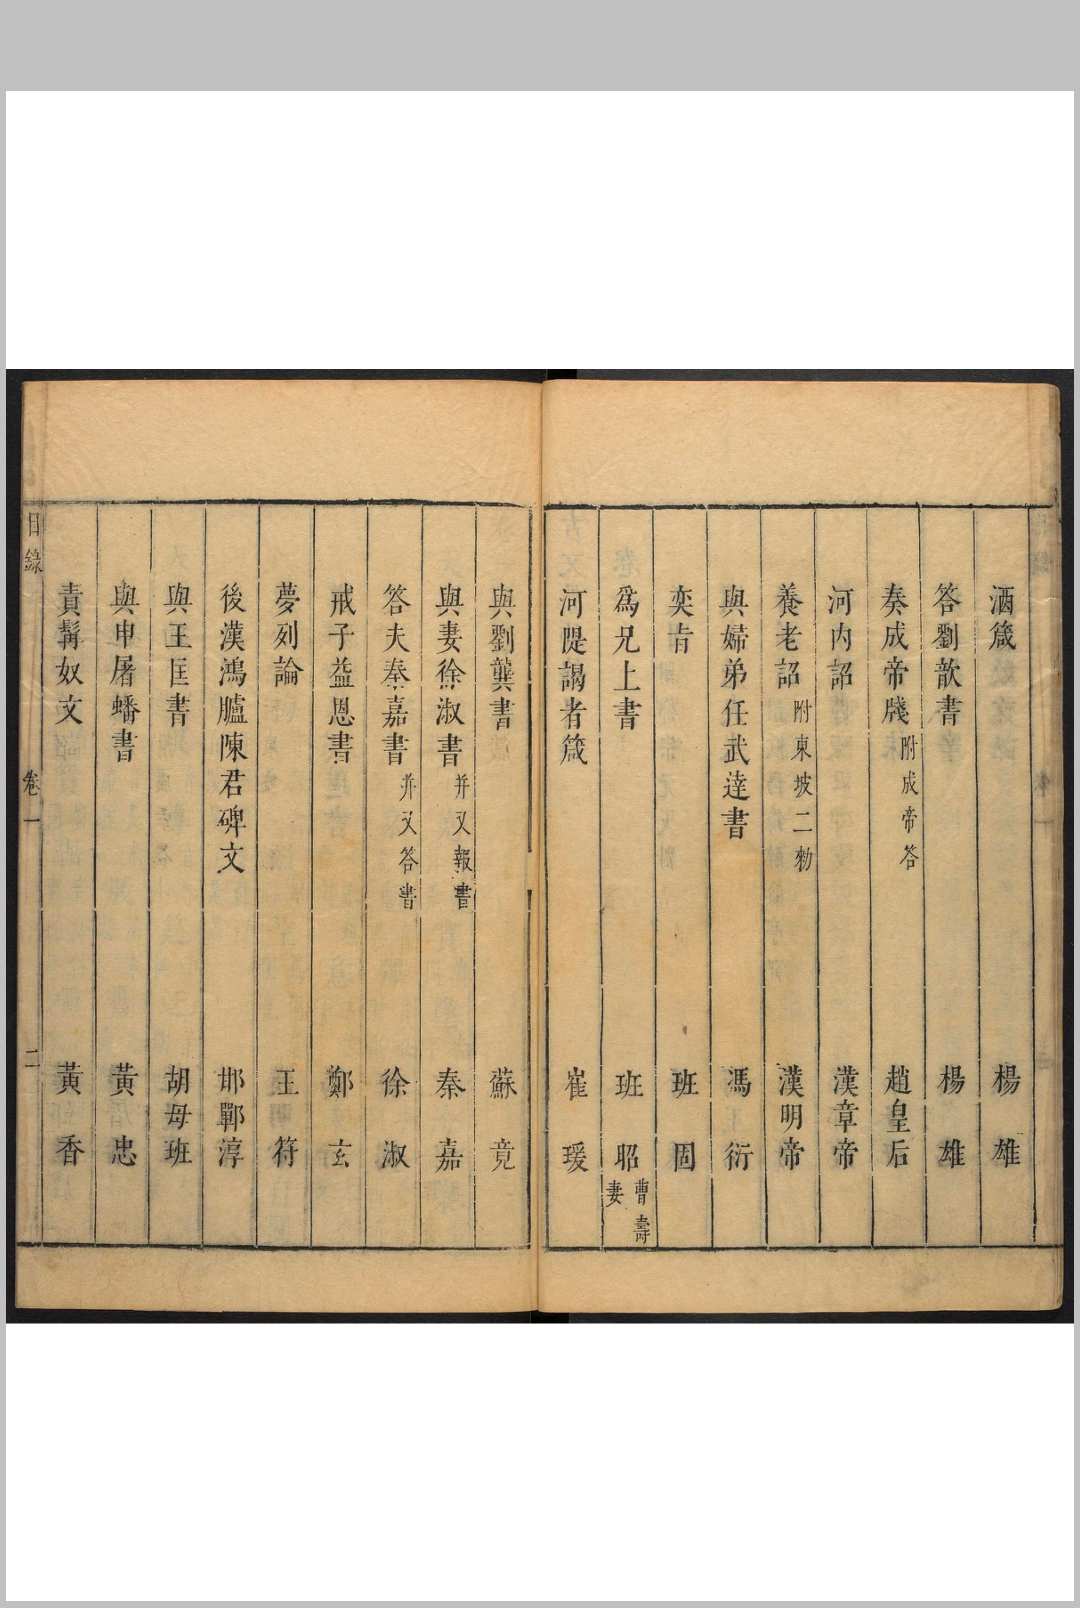 酒箴 楊雄
答劉歆書 楊雄
奏成帝牋 附成帝答 趙皇后
河内詔 漢章帝
養老詔 附東坡二勑 漢明帝
與婦弟任武達書 馮衍
奕旨 班固
爲兄上書 班昭 曹壽妻
河隄謁者箴 崔瑗
與劉龔書 蘇竟
與妻徐淑書 并又報書 秦嘉
答夫秦嘉書 并又答書 徐淑
戒子益恩書 鄭玄
夢列論 王符
後漢鴻臚陳君碑文 邯鄲淳
與王匡書 胡母班
與申屠蟠書 黃忠
責髯奴文 黃香
目錄 卷一 二